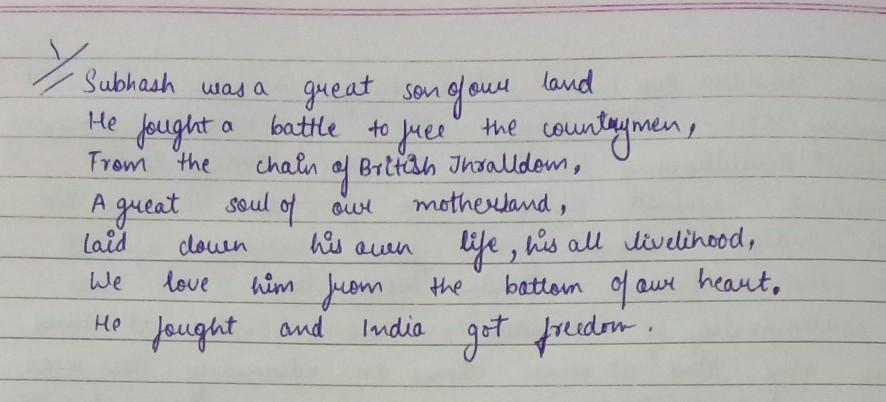 Subhash was a great son of our land
He fought a battle to free the countrymen,
From the chain of British Thralldom,
A great soul of our motherland,
Laid down his own life, his all livelihood,
We love him from the bottom of our heart.
He fought and India got freedom.